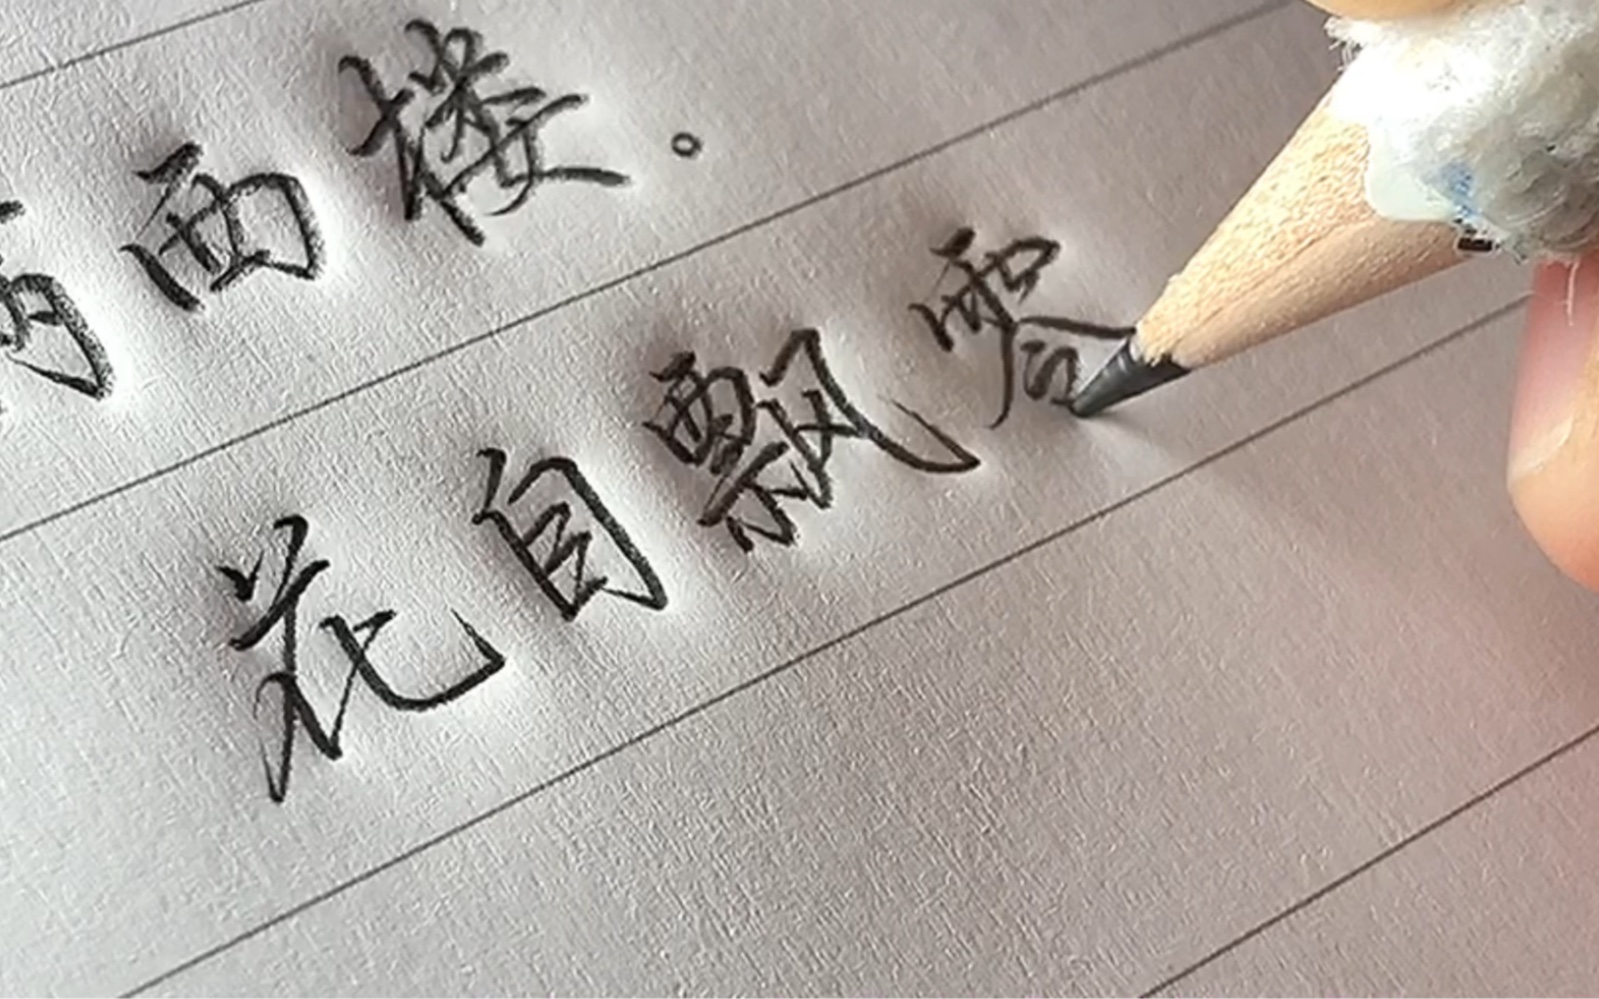 满西楼。
花自飘零